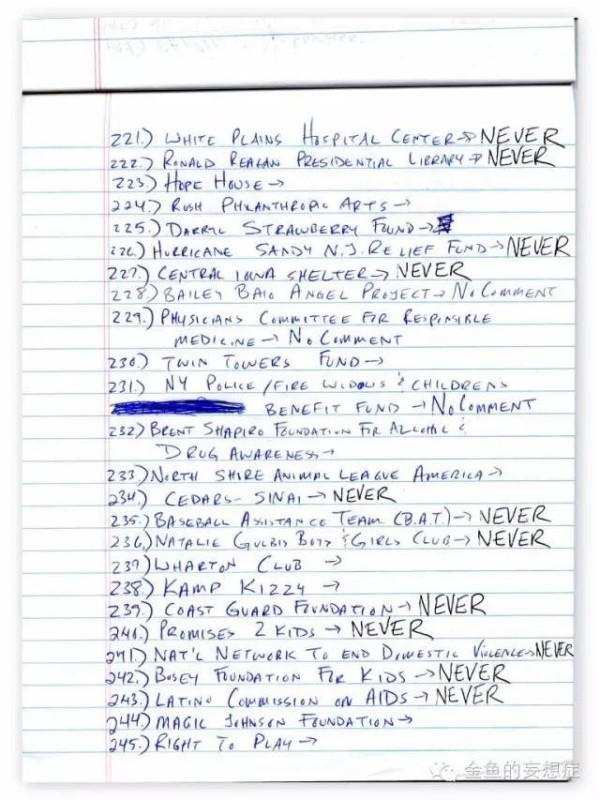 221.) WHITE PLAINS HOSPITAL CENTER → NEVER
222.) RONALD REAGAN PRESIDENTIAL LIBRARY → NEVER
223.) HOPE HOUSE →
224.) RUSH PHILANTHROPIC ARTS →
225.) DARRYL STRAWBERRY FOUND →
226.) HURRICANE SANDY N.J. RELIEF FUND → NEVER
227.) CENTRAL IOWA SHELTER → NEVER
228.) BAILEY BAIO ANGEL PROJECT → NO COMMENT
229.) PHYSICIANS COMMITTEE FOR RESPONSIBLE
MEDICINE → NO COMMENT
230.) TWIN TOWERS FUND →
231.) NY POLICE/FIRE WIDOWS & CHILDRENS
BENEFIT FUND → NO COMMENT
232.) BRENT SHAPIRO FOUNDATION FOR ALCOHOL &
DRUG AWARENESS →
233.) NORTH SHORE ANIMAL LEAGUE AMERICA →
234.) CEDARS-SINAI → NEVER
235.) BASEBALL ASSISTANCE TEAM (B.A.T.) → NEVER
236.) NATALIE GULBIS BOYS & GIRLS CLUB → NEVER
237.) WHARTON CLUB →
238.) KAMP KIZZY →
239.) COAST GUARD FOUNDATION → NEVER
240.) PROMISES 2 KIDS → NEVER
241.) NAT'L NETWORK TO END DOMESTIC VIOLENCE → NEVER
242.) BUSEY FOUNDATION FOR KIDS → NEVER
243.) LATINO COMMISSION ON AIDS → NEVER
244.) MAGIC JOHNSON FOUNDATION →
245.) RIGHT TO PLAY →
金鱼的妄想症